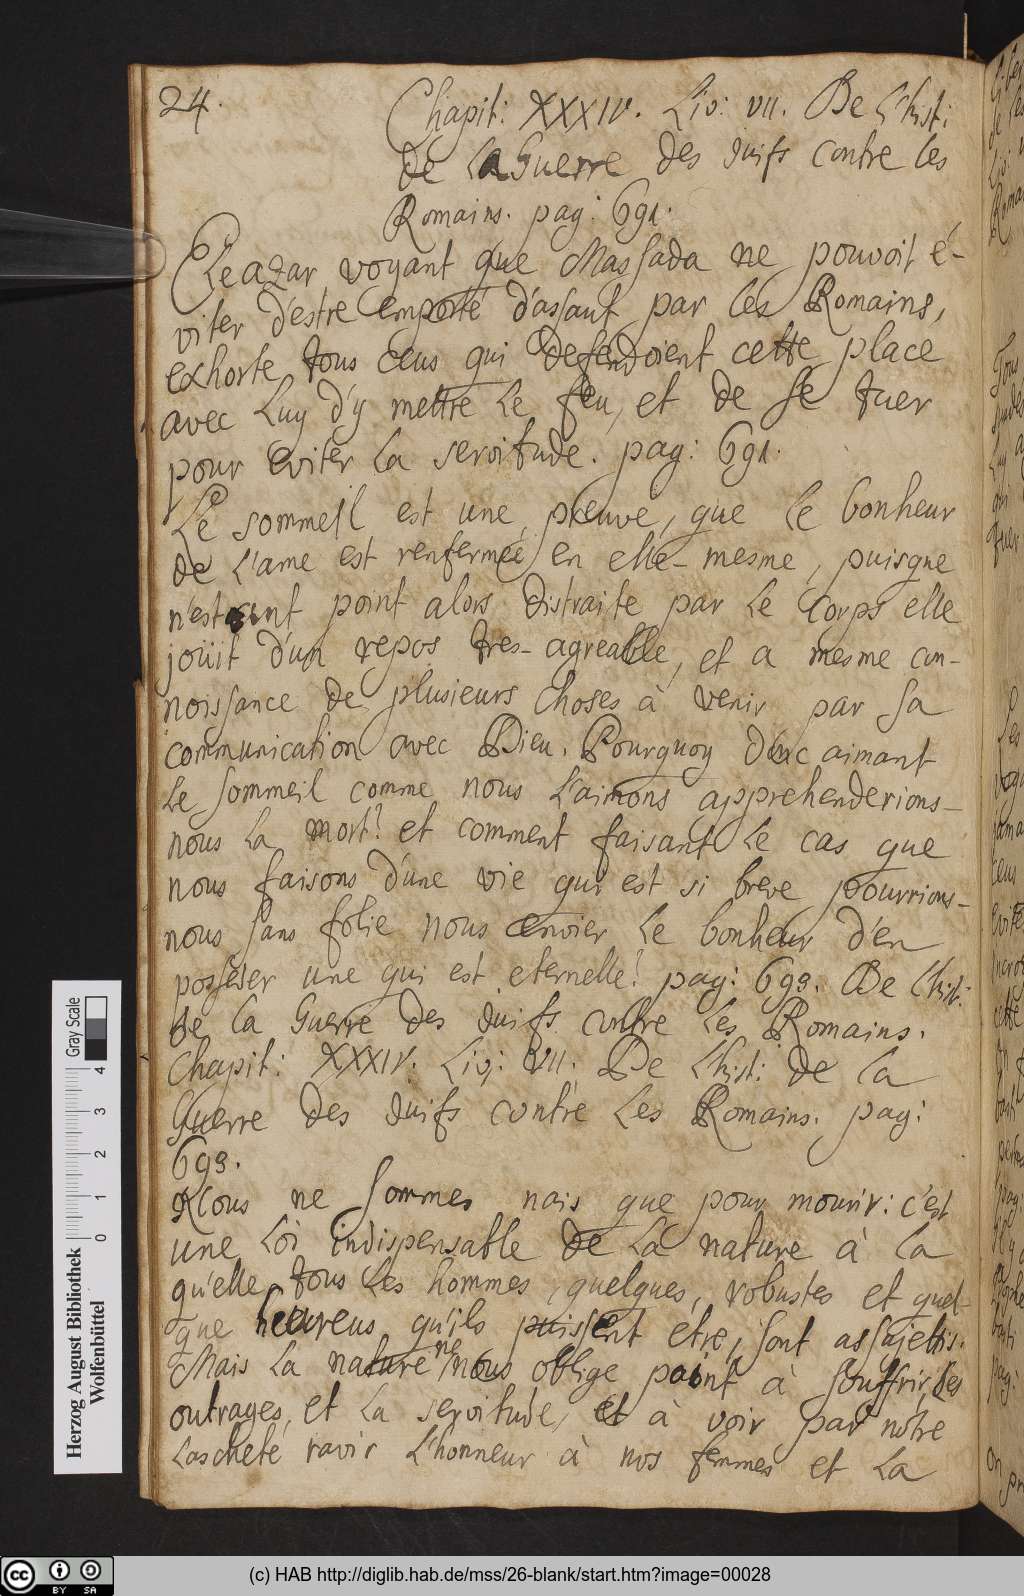 24.
Chapit: XXXIV. Liv: VII. De l'hist:
de la Guerre des Juifs contre les
Romains. pag: 691.
Eleazar voyant que Massada ne pouvoit é-
viter d'estre emporté d'assaut par les Romains,
exhorte tous ceus qui defendoient cette place
avec Luy d'y mettre le feu, et de se tuer
pour eviter la servitude. pag: 691.
Le sommeil est une preuve, que le bonheur
de l'ame est renfermée en elle-mesme, puisque
n'estant point alors distraite par le corps elle
joüit d'un repos tres-agreable, et a mesme con-
noissance de plusieurs choses à venir par sa
communication avec Dieu. Pourquoy donc aimant
le sommeil comme nous l'aimons apprehenderions-
nous la mort? et comment faisant le cas que
nous faisons d'une vie qui est si breve pourrions-
nous sans folie nous envier le bonheur d'en
posseder une qui est eternelle? pag: 693. De l'hist:
de la Guerre des Juifs contre les Romains.
Chapit: XXXIV. Liv: VII. De l'hist: de la
Guerre des Juifs contre les Romains. pag:
693.
Nous ne sommes nais que pour mourir: c'est
une Loi indispensable de la nature à la
qu'elle tous les hommes, quelques, robustes et quel-
que heureus qu'ils puissent etre, sont assujetis.
Mais la nature ne nous oblige point à souffrir, les
outrages, et la servitude, et à voir par nôtre
lascheté ravir l'honneur à nos femmes et la
Gray Scale
0 1 2 3 4
Herzog August Bibliothek
Wolfenbüttel
(c) HAB http://diglib.hab.de/mss/26-blank/start.htm?image=00028
cc BY SA